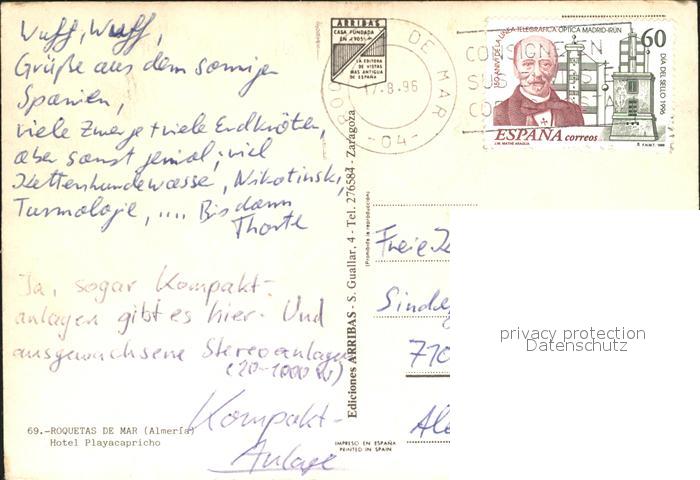 Wuff, Wuff,
Grüße aus dem sonnigen
Spanien,
viele Zwerge + viele Erdkröten,
aber sonst genial; viel
Kettenhundewasse, Nikotinski,
Turmologie, .... Bis dann
Thorte
Ja, sogar Kompakt-
anlagen gibt es hier. Und
ausgewachsene Stereoanlagen
(20-1000 W)
Kompakt-
Anlage
69.-ROQUETAS DE MAR (Almería)
Hotel Playacapricho
ARRIBAS
CASA FUNDADA
EN 1905
LA EDITORA
DE VISTAS
MAS ANTIGUA
DE ESPAÑA
Ediciones ARRIBAS - S. Guallar, 4 - Tel. 276584 - Zaragoza
(Prohibida la reproducción)
IMPRESO EN ESPAÑA
PRINTED IN SPAIN
DE MAR
17-8-96
-04-
CONSIGNE EN
SU
CO
150 ANIV. DE LA LINEA TELEGRAFICA OPTICA MADRID-IRUN
60
DIA DEL SELLO 1996
ESPAÑA correos
J.M. MATHE ARAGUA
F.N.M.T. 1996
Freie
Sinde
710
Ale
privacy protection
Datenschutz